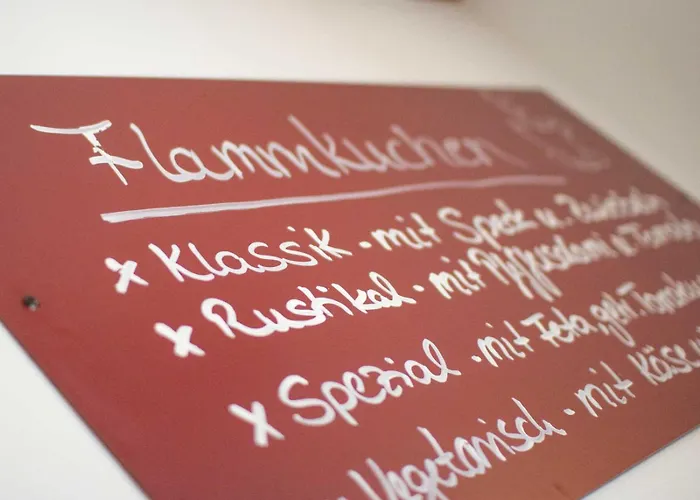 Flammkuchen
x Klassik - mit Speck u. Zwiebeln
x Rustikal - mit Pfeffersalami u. Tomaten
x Spezial - mit Feta, getr. Tomaten
Vegetarisch - mit Käse